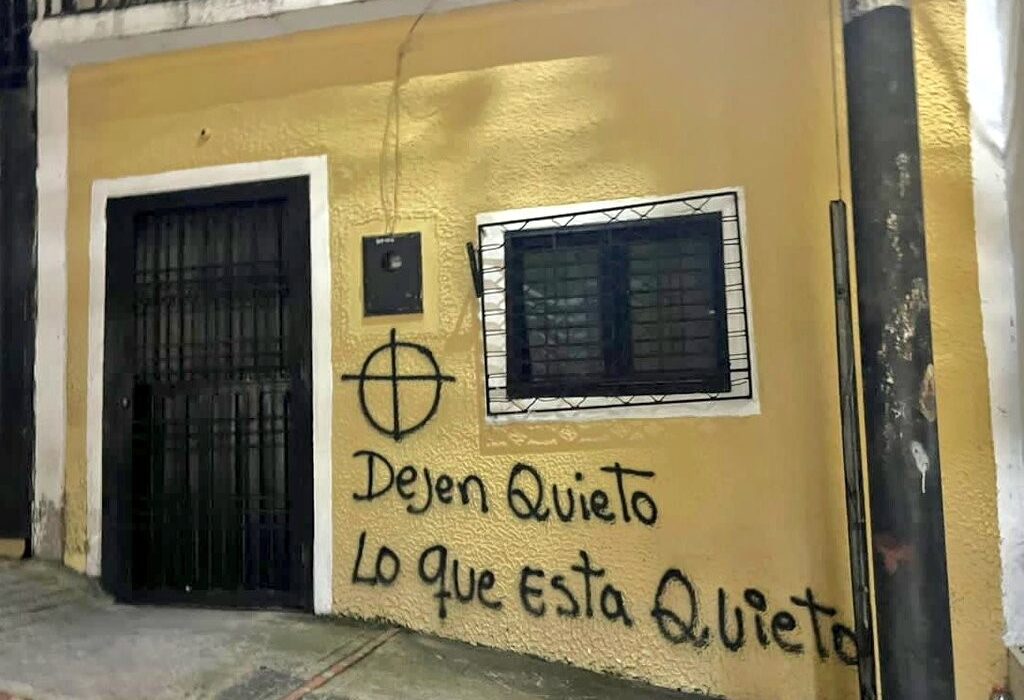 Dejen Quieto
Lo que Esta Quieto